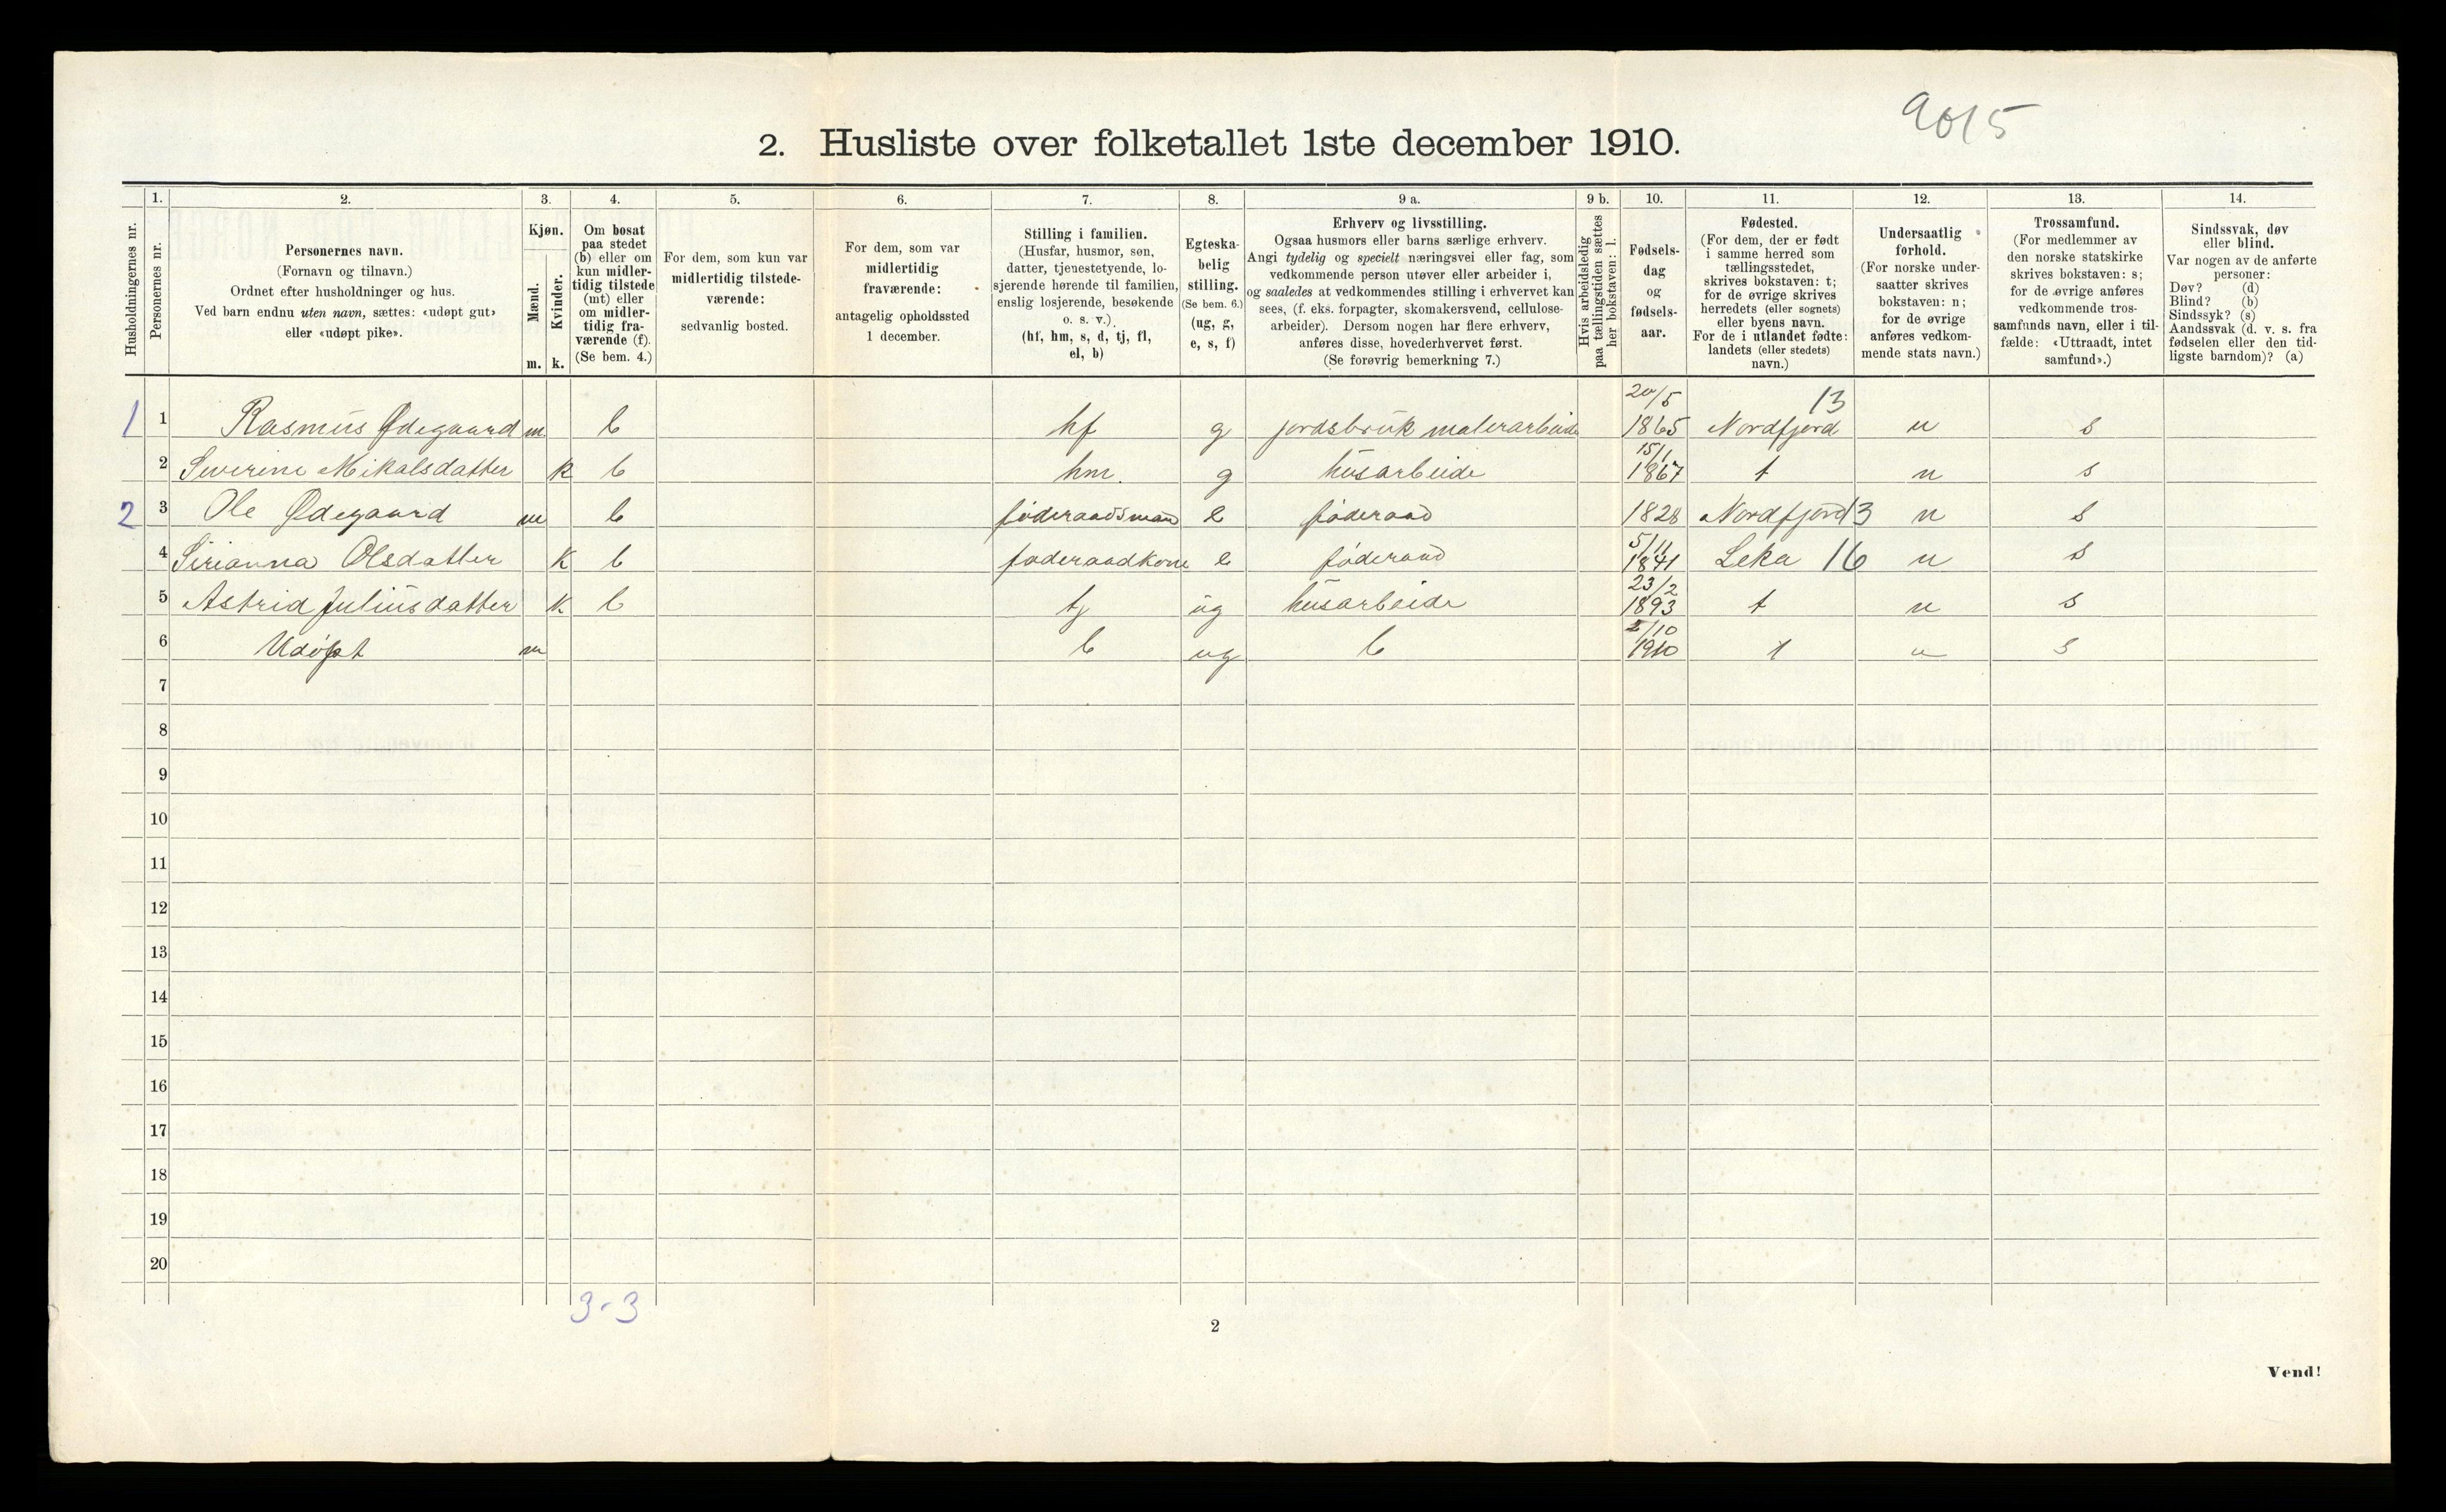 9015
2. Husliste over folketallet 1ste december 1910.
Husholdningernes nr.
1. Personernes nr.
2. Personernes navn. (Fornavn og tilnavn.) Ordnet efter husholdninger og hus. Ved barn endnu uten navn, sættes: «udøpt gut» eller «udøpt pike».
3. Kjøn. Mænd. m. Kvinder. k.
4. Om bosat paa stedet (b) eller om kun midler-tidig tilstede (mt) eller om midler-tidig fra-værende (f). (Se bem. 4.)
5. For dem, som kun var midlertidig tilstede-værende: sedvanlig bosted.
6. For dem, som var midlertidig fraværende: antagelig opholdssted 1 december.
7. Stilling i familien. (Husfar, husmor, søn, datter, tjenestetyende, lo-sjerende hørende til familien, enslig losjerende, besøkende o. s. v.). (hf, hm, s, d, tj, fl, el, b)
8. Egteska-belig stilling. (Se bem. 6.) (ug, g, e, s, f)
9 a. Erhverv og livsstilling. Ogsaa husmors eller barns særlige erhverv. Angi tydelig og specielt næringsvei eller fag, som vedkommende person utøver eller arbeider i, og saaledes at vedkommendes stilling i erhvervet kan sees, (f. eks. forpagter, skomakersvend, cellulose-arbeider). Dersom nogen har flere erhverv, anføres disse, hovederhvervet først. (Se forøvrig bemerkning 7.)
9 b. Hvis arbeidsledig paa tællingstiden sættes her bokstaven: l.
10. Fødsels-dag og fødsels-aar.
11. Fødested. (For dem, der er født i samme herred som tællingsstedet, skrives bokstaven: t; for de øvrige skrives herredets (eller sognets) eller byens navn. For de i utlandet fødte: landets (eller stedets) navn.)
12. Undersaatlig forhold. (For norske under-saatter skrives bokstaven: n; for de øvrige anføres vedkom-mende stats navn.)
13. Trossamfund. (For medlemmer av den norske statskirke skrives bokstaven: s; for de øvrige anføres vedkommende tros-samfunds navn, eller i til-fælde: «Uttraadt, intet samfund».)
14. Sindssvak, døv eller blind. Var nogen av de anførte personer: Døv? (d) Blind? (b) Sindssyk? (s) Aandssvak (d. v. s. fra fødselen eller den tid-ligste barndom)? (a)
1 1 Rasmus Ødegaard m b hf g jordsbruk malerarbeide 20/5 1865 Nordfjord 13 n s
2 Severine Mikalsdatter k b hm. g husarbeide 15/1 1867 t n s
2 3 Ole Ødegaard m b føderaadsman e føderaad 1828 Nordfjord 13 n s
4 Sirianna Olsdatter k b føderaadkone e føderaad 5/11 1841 Leka 16 n s
5 Astrid Juliusdatter k b tj ug husarbeide 23/2 1893 t n s
6 Udøpt m b ug b /10 1910 t n s
7
8
9
10
11
12
13
14
15
16
17
18
19
20
3-3
2
Vend!